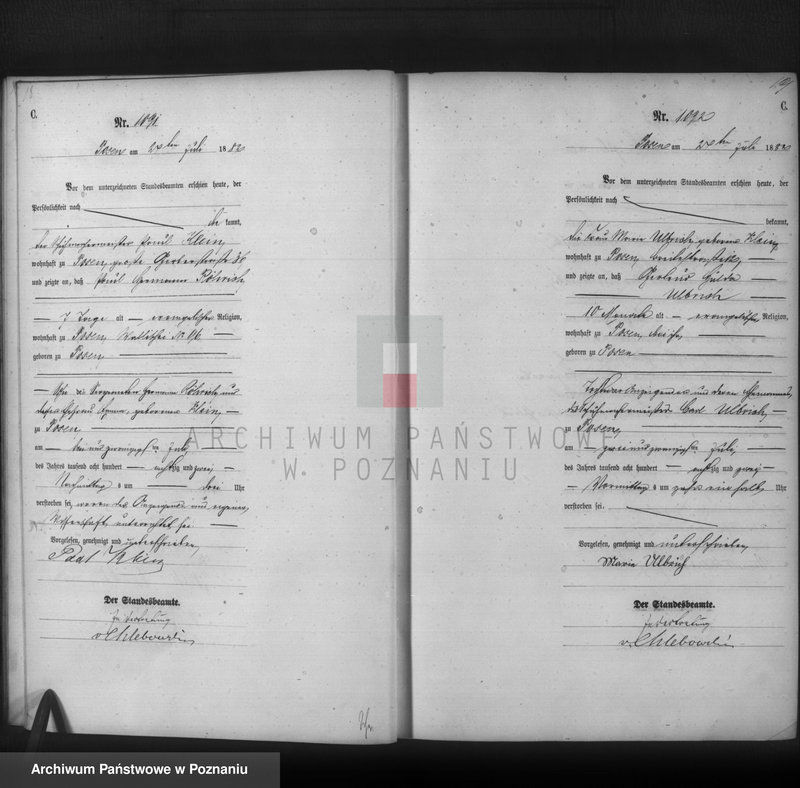 C.
Nr. 1091
Posen am 24ten Juli 1882
Vor dem unterzeichneten Standesbeamten erschien heute, der
Persönlichkeit nach
be kannt,
der Schuhmachermeister Paul Klein,
wohnhaft zu Posen, große Gerberstraße 36
und zeigte an, daß Paul Hermann Röhrich
7 Tage alt evangelischer Religion,
wohnhaft zu Posen Wallischei Nr.
geboren zu Posen
Sohn des Hermann Röhrich und
dessen Ehefrau geborene Klein,
zu Posen
am drei und zwanzigsten Juli
des Jahres tausend acht hundert achtzig und zwei
Nachmittag s um drei Uhr
verstorben sei,
unterrichtet sei
Vorgelesen, genehmigt und unterschrieben
Paul Klein
Der Standesbeamte.
In Vertretung
v. Chlebowski
C.
Nr. 1092
Posen am 24ten Juli 1882
Vor dem unterzeichneten Standesbeamten erschien heute, der
Persönlichkeit nach
bekannt,
die Frau Marie Ulbrich, geborene Klein,
wohnhaft zu Posen, Breitestraße
und zeigte an, daß Gertrud Hulda
Ulbrich
10 Monate alt evangelischer Religion,
wohnhaft zu Posen, bei ihr
geboren zu Posen
Tochter Anzeigender und deren Ehemannes,
des Schuhmachermeisters Carl Ulbrich
zu Posen,
am zwei und zwanzigsten Juli
des Jahres tausend acht hundert achtzig und zwei
Vormittag s um sechs ein halb Uhr
verstorben sei.
Vorgelesen, genehmigt und unterschrieben
Marie Ulbrich
Der Standesbeamte.
In Vertretung
v. Chlebowski
ARCHIWUM PAŃSTWOWE
W POZNANIU
Archiwum Państwowe w Poznaniu